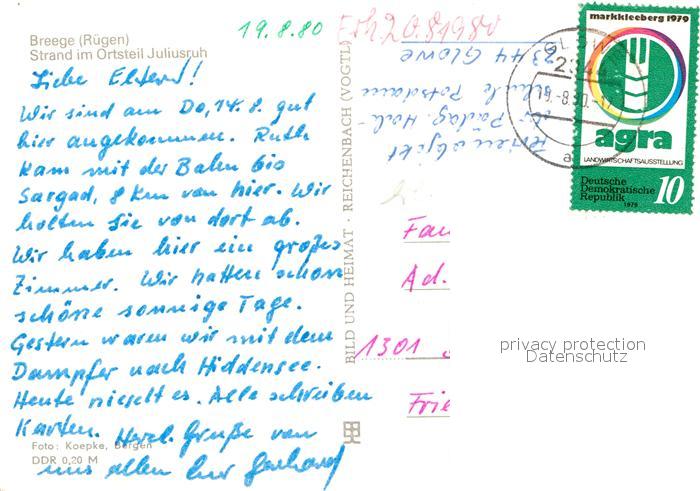 19.8.80
Erh. 20.8.1980
Breege (Rügen)
Strand im Ortsteil Juliusruh
Liebe Eltern!
Wir sind am Do, 14.8. gut
hier angekommen. Ruth
kam mit der Bahn bis
Sargad, 8 km von hier. Wir
holten sie von dort ab.
Wir haben hier ein großes
Zimmer. Wir hatten schon
schöne sonnige Tage.
Gestern waren wir mit dem
Dampfer nach Hiddensee.
Heute nieselt es. Alle schreiben
Karten. Herzl. Grüße von
uns allen Eur Gerhard
Foto: Koepke, Bergen
DDR 0,20 M
BILD UND HEIMAT · REICHENBACH (VOGTL)
Ferienobjekt
Pädag. Hoch-
schule Potsdam
2344 Glowe
Fam
Ad.
1301
Frie
GLOWE
2344
19.-8.80.-17
a
markkleeberg 1979
agra
LANDWIRTSCHAFTSAUSSTELLUNG
Deutsche
Demokratische
Republik 10
1979
privacy protection
Datenschutz